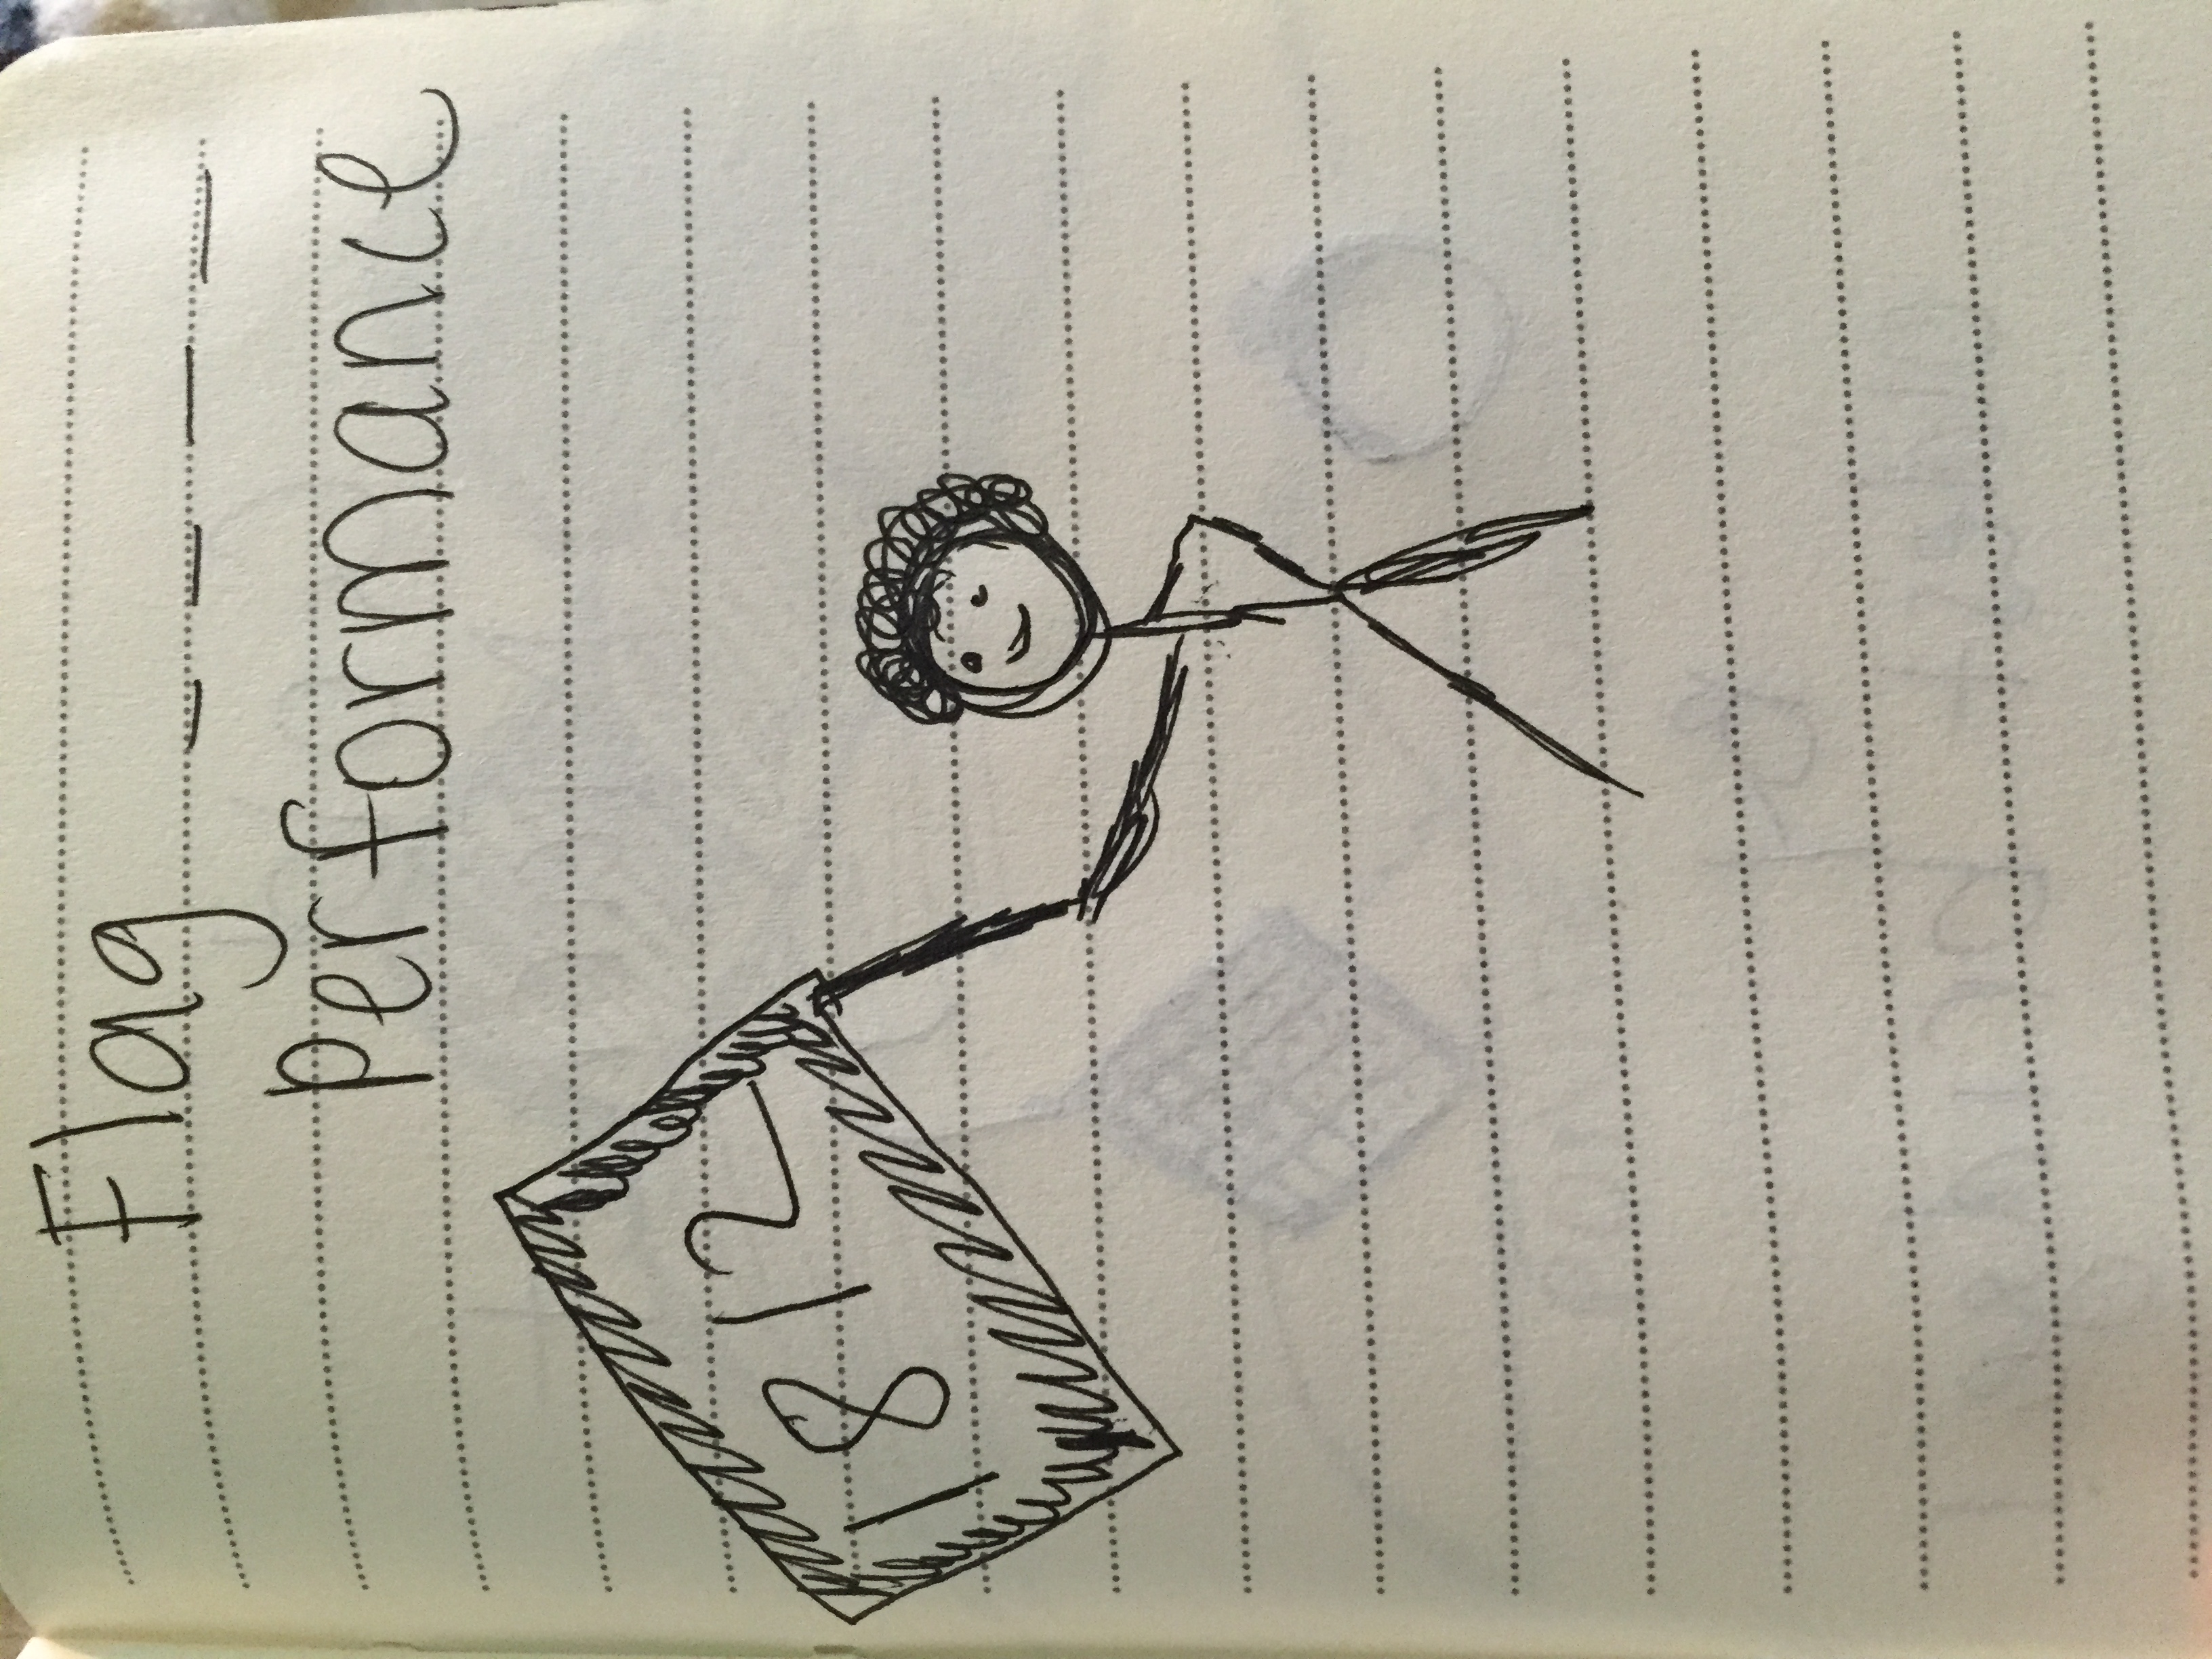 Flag _ _ _ _
performance
1812